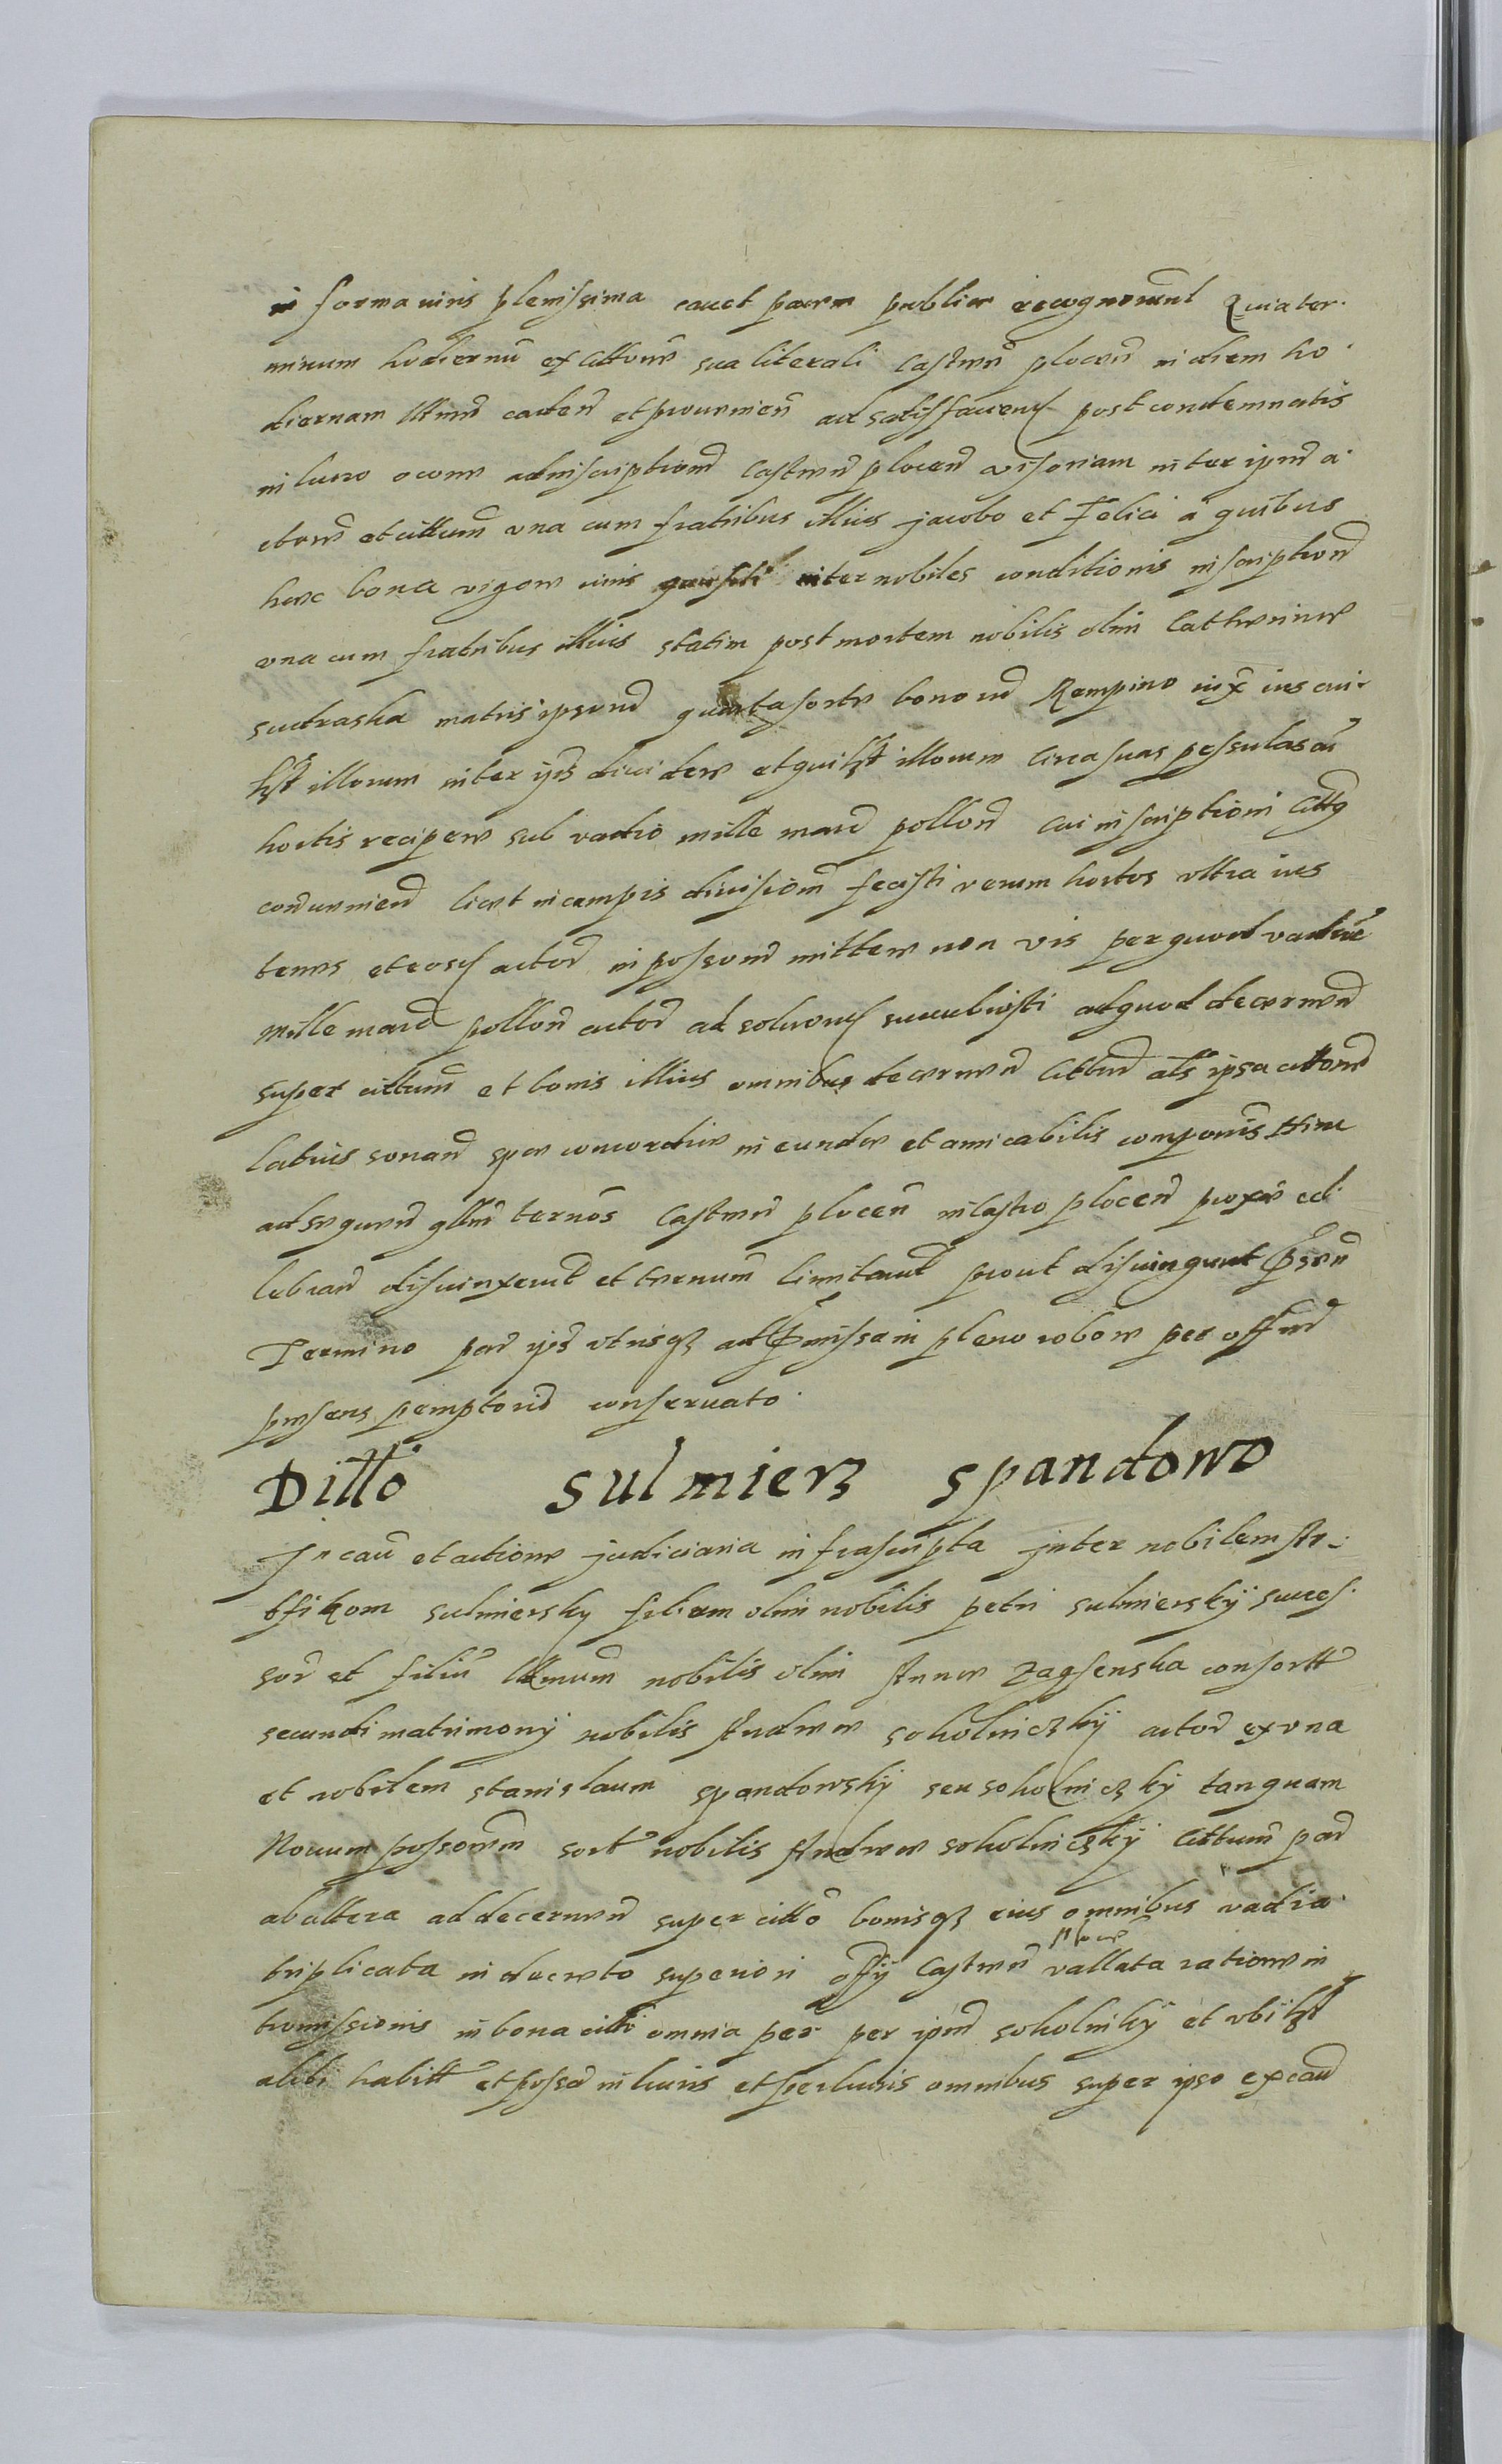 in forma iuris plenissima cauet parem publice recognouerunt Quia ter-
minum hodiernũ ex cittone sua literali Castren̄ plocen̄ in diem ho-
diernam caden̄ et proueniēn ad satisfaciend post condemnatis
in lucro adinscriptionē Castren̄ plocen̄ diuisoriam inter ipm̄ a-
ctorē et cittum̄ vna cum fratribus illius jacobo et Felici a quibus
haec bona vigore iuris inter nobiles conditionis inscriptionē
vna cum fratribus illius statim post mortem nobilis olim Catherinae
sudraska matris ipsorū quarta sorte bonorū Rempino iux̄ ius cui-
lz̄t illorum inter ip̄s diuidere et quilz̄t illorum circa suas pessulas cū
hortis recipere sub vadio mille marc̄ pollon̄ Cui inscriptioni citt9
condueniend̄ licet in campis diuisionē fecisti verum hortos vltra ius
tenes et eosd̄ actor̄ in posson̄ mittere non vis per quod vadiū
mille marc̄ pollon̄ actor̄ ad soluend̄ succubuisti ad quod decernen̄
super cittum̄ et bonis illius omnibus decernen̄ cittū als̄ ipsa cittone
latius sonan̄ spe concordiae in eundae et amicabilis componis hinc
ad sequen̄ gllm̄ ternos̄ Castren̄ plocen̄ in castro plocen̄ proxē cel-
lebran̄ disiunxerūt et termum̄ limitarūt prout disiungunt p̄sen̄
Termino par̄ ip̄s vtrisqz ad p̄missa in pleno robore per off̄m̄
praesens pemptoriē conseruato.
Ditto sulmiercz spandowo
In cau̇ et actione judiciaria infrascripta jnter nobilem
sulmiersky filium olim nobilis petri sulmierskÿ succes-
sor̄ et filiū nobilis olim Annae zagsenska consort̄
secundi matrimonÿ nobilis Andreae sokolniczkÿ actor̄ ex vna
et nobilem stanislaum spandowskÿ seu sokolniczkÿ tanquam
Nouum possorem̄ sort̄ nobilis Andreae sokolniczkÿ cittum̄ par̄
ab altera ad decernen̄ super citto bonisqz eius omnibus vadia
triplicata in decreto superiori off̄ÿ Castren̄ plocen̄ vallata ratione in
tromissionis in bona citti omnia per per ipm̄ sokolnikÿ et vbilz̄t
alibi habitt̄ et possā in lucris et perlucris omnibus super ipso ex cau̇